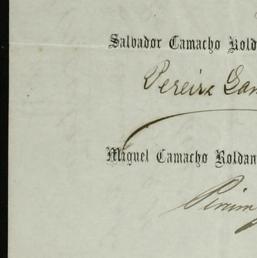 Salvador Camacho Rold
Pereira Gam
Miguel Camacho Roldan